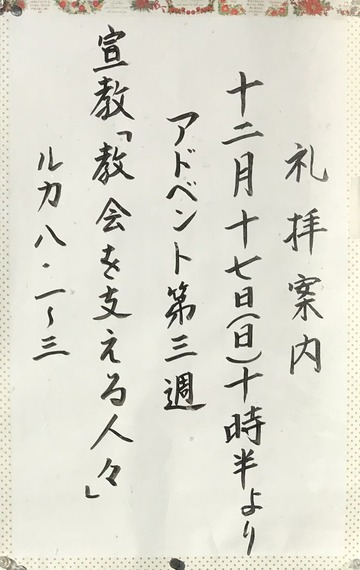 礼拝案内
十二月十七日(日)十時半より
アドベント第三週
宣教「教会を支える人々」
ルカ八・一~三